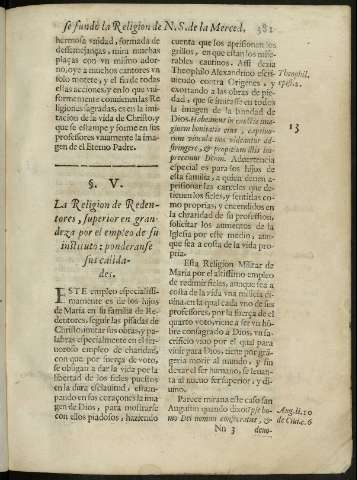 se fundò la Religion de N.S. de la Merced. 381
hermosa vnidad, formada de
dessemejanças, mira muchas
plaças con vn mismo ador-
no, oye a muchos cantores vn
solo motete, y el fin de todas
essas acciones, y en lo que vni-
formemente convienen las Re
ligiones sagradas, es en la imi-
tacion de la vida de Christo, y
que se estampe y forme en sus
professores vivamente la ima-
gen de el Eterno Padre.
§. V.
La Religion de Reden-
tores, superior en gran-
deza por el empleo de su
instituto: ponderanse
sus calida-
des.
ESTE empleo especialissi-
mamente es de los hijos
de Maria en su familia de Re-
dentores, seguir las pisadas de
Christo, imitar sus obras, y pa-
labras especialmente en el fer-
voroso empleo de charidad,
con que por fuerça de voto,
se obligan a dar la vida por la
libertad de los fieles puestos
en la dura esclauitud, estam-
pando en sus coraçones la ima
gen de Dios, para mostrarse
con ellos piadosos, haziendo
cuenta que los aprisionan los
grillos, en que estan los mise-
rables cautiuos. Assi dezia
Theophilo Alexandrino escri-
uiendo contra Origenes, y
exortando a las obras de pie-
dad, que se imitasse en todo
la imagen de la bondad de
Dios.
adstringere, & propitium illis im-
precemur Deum. Advertencia
especial es para los hijos de
esta familia, a quien deuen a-
prisionar las carceles que de-
tienen los fieles, y sentirlas co
mo proprias, y encendidos en
la charidad de su profession,
solicitar los aumentos de la
Iglesia por este medio, aun-
que sea a costa de la vida pro-
pria.
Esta Religion Militar de
Maria por el altissimo empleo
de redimir fieles, aunque sea a
costa de la vida vna milicia di
uina, en la qual cada vno de sus
professores, por la fuerça de el
quarto voto, viene a ser vn hō
bre consagrado a Dios, vn sa-
crificio vivo por el qual para
vivir para Dios, tiene por grā-
geria morir al mundo, y sin
dexar el ser humano, se leuan-
ta al nueuo ser superior, y di-
uino.
Parece mirava este caso san
Augustin quando dixo: Ipse ho-
mo Dei nomini consecratus, &
Nn 3 deuo-
Theophil.
epist.2.
13
Aug. li. 10
de Ciuit. c. 6